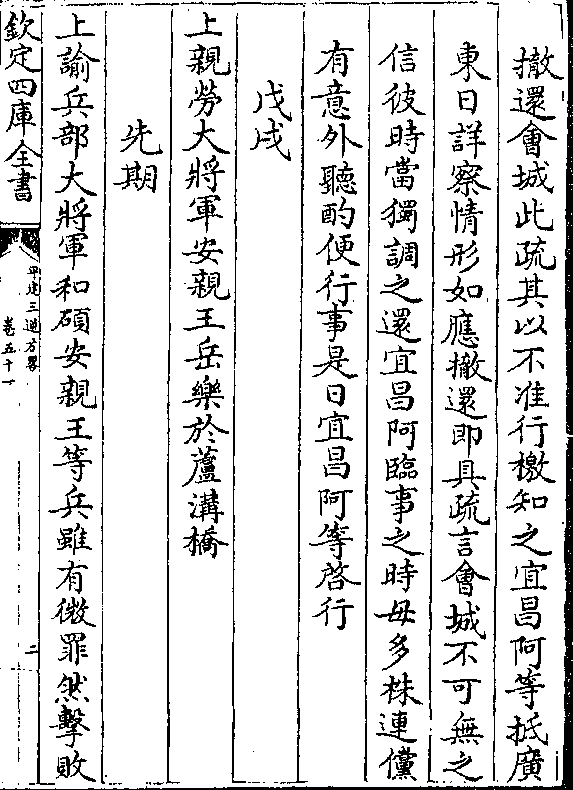 撤還會城此疏其以不准行檄知之宜昌阿等抵廣
東日詳察情形如應撤還即具疏言會城不可無之
信彼時當獨調之還宜昌阿臨事之時毋多株連儻
有意外聽酌便行事是日宜昌阿等啓行
戊戌
上親勞大將軍安親王岳樂於蘆溝橋
先期
上諭兵部大將軍和碩安親王等兵雖有微罪然擊敗
欽定四庫全書
平定三逆方畧
卷五十一
二